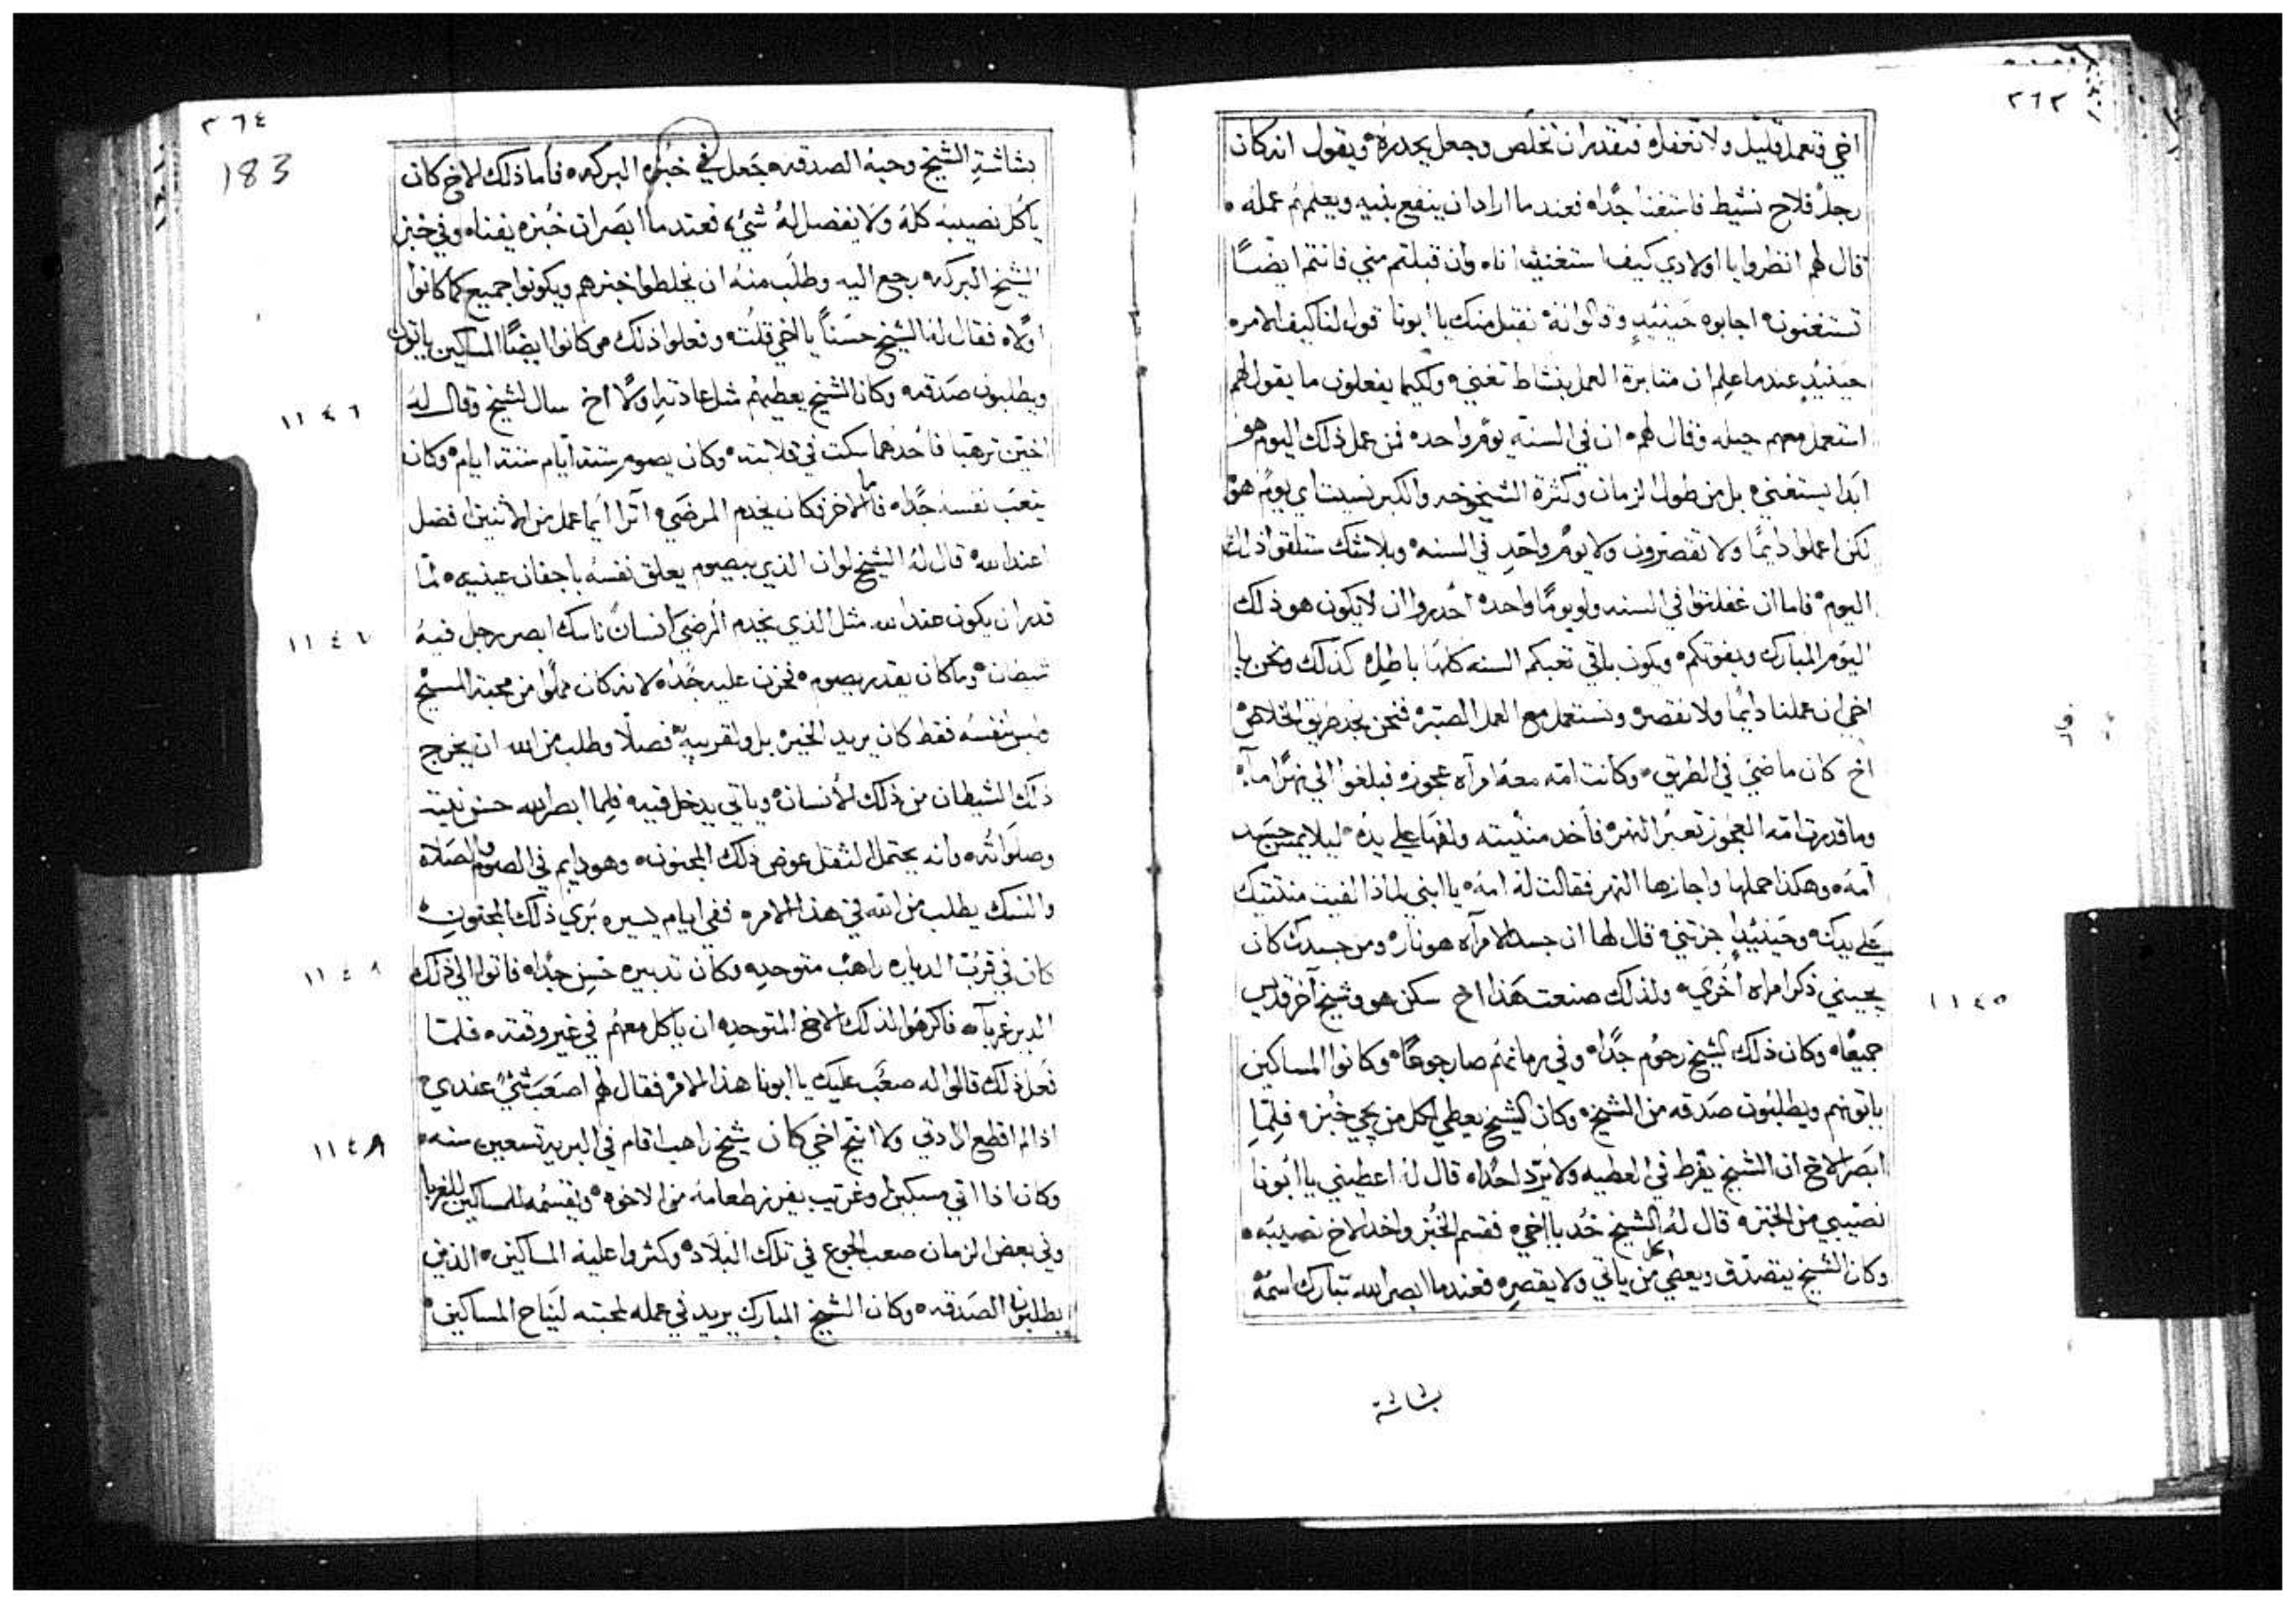 ٣٦٣
اخي فنعمل قليل ولا نغفل فنقدر ان نخلص وجعل يحدره ويقول انه كان
رجل فلاح نشيط فاستغنا جدا فعندما اراد ان ينفع بنيه ويعلمهم عمله
قال لهم انظروا يا اولادي كيف استغنيت اناه وان قبلتم مني فانتم ايضا
تستغنون اجابوه حينيد وقالوا نقبل منك يا ابونا قول لنا كيف الامر
حينيد عندما علم ان مثابرة العمل بنشاط تغني ولكيما يفعلون ما يقول لهم
استعمل معهم حيله وقال لهم ان في السنه يوم واحد فمن عمل ذلك اليوم هو
ابدا يستغني بل من طول الزمان وكثرة الشيخوخه والكبر نسيت اي يوم هو
لكن اعملوا دايما ولا تقصرون ولا يوم واحد في السنه وبلا شك ستلقوا ذلك
اليوم فاما ان غفلتوا في السنه ولو يوما واحد احدروا ان لا يكون هو ذلك
اليوم المبارك ويفوتكم ويكون باقي تعبكم السنه كلها باطل كذلك ونحن يا
اخي ان عملنا دايما ولا نقصر ونستعمل مع العمل الصبر فنحن نجد طريق الخلاص
اخ كان ماضي في الطريق وكانت امه معه امراه عجوز فبلغوا الي نهر ماء
وما قدرت امه العجوز تعبر النهر فأخد منديته ولفها علي يده ليلا يمس جسد
امه وهكذا حملها واجازها النهر فقالت له امه يا ابني لماذا لفيت منديتك
علي يدك وحينيد اجزتني قال لها ان جسد الامراه هو نار ومن جسدك كان
يجيني ذكر امراه اخري ولذلك صنعت هذا اخ سكن هو وشيخ آخر قديس
١١٤٥
جميعا وكان ذلك الشيخ رحوم جدا وفي زمانهم صار جوعا وكانوا المساكين
ياتونهم ويطلبون صدقه من الشيخ وكان الشيخ يعطي لكل من يجي خبز فلما
ابصر الاخ ان الشيخ يفرط في العطيه ولا يرد احدا قال له اعطيني يا ابونا
نصيبي من الخبز قال له الشيخ خد يا اخي فقسم الخبز واخد الاخ نصيبه
وكان الشيخ يتصدق ويعطي لكل من ياتي ولا يقصر فعندما ابصر الله تبارك اسمه
بشاشة
٣٦٤
183
بشاشة الشيخ وحبه الصدقه جعل في خبزه البركه فاما ذلك الاخ كان
ياكل نصيبه كله ولا يفضل له شي فعندما ابصر ان خبزه يفناه وفي خبز
الشيخ البركه رجع اليه وطلب منه ان يخلطوا خبزهم ويكونوا جميع كما كانوا
اولا فقال له الشيخ حسنا يا اخي قلت وفعلوا ذلك من كانوا ايضا المساكين ياتون
ويطلبون صدقه وكان الشيخ يعطيهم مثل عادته اولا اخ سال الشيخ وقال له
١١٤٦
اختين ترهبا فاحدهما سكت في قلايته وكان يصوم ستة ايام ستة ايام وكان
يتعب نفسه جدا فاما الاخر فكان يخدم المرضي اترا ايما عمل من الاثنين افضل
عند الله قال له الشيخ لوان الذي يصوم يعلق نفسه باجفان عينيه لما
قدر ان يكون عند الله مثل الذي يخدم المرضي انسان ناسك ابصر رجل فيه
١١٤٧
شيطان وما كان يقدر يصوم فحزن عليه جدا لانه كان مملوا من محبة المسيح
ليس لنفسه فقط كان يريد الخير بل ولقريبه فصلا وطلب من الله ان يخرج
ذلك الشيطان من ذلك الانسان وياتي يدخل فيه فلما ابصر الله حسن نيته
وصلواته وانه يحتمل الثقل عوض ذلك المجنون وهو دايم في الصوم والصلاة
والنسك يطلب من الله في هذا الامر ففي ايام يسيره بري ذلك المجنون
كان في قرب الدياره راهب متوحد وكان تدبيره حسن جدا فاتوا الي ذلك
١١٤٨
الدير غرباء فاكرهوا لذلك الاخ المتوحد ان ياكل معهم في غير وقته فلما
فعل ذلك قالوا له صعب عليك يا ابونا هذا الامر فقال لهم اصعب شي عندي
اذا لم اقطع ارادتي ولا انيح اخي كان شيخ راهب اقام في البريه تسعين سنه
١١٤٩
وكان اذا اتي مسكين او غريب يفرز طعامه من الاخوه ويقسمه للمساكين للغربا
وفي بعض الزمان صعب الجوع في تلك البلاد وكثروا عليه المساكين الذين
يطلبون الصدقه وكان الشيخ المبارك يريد في عمله لمحبته لينيح المساكين